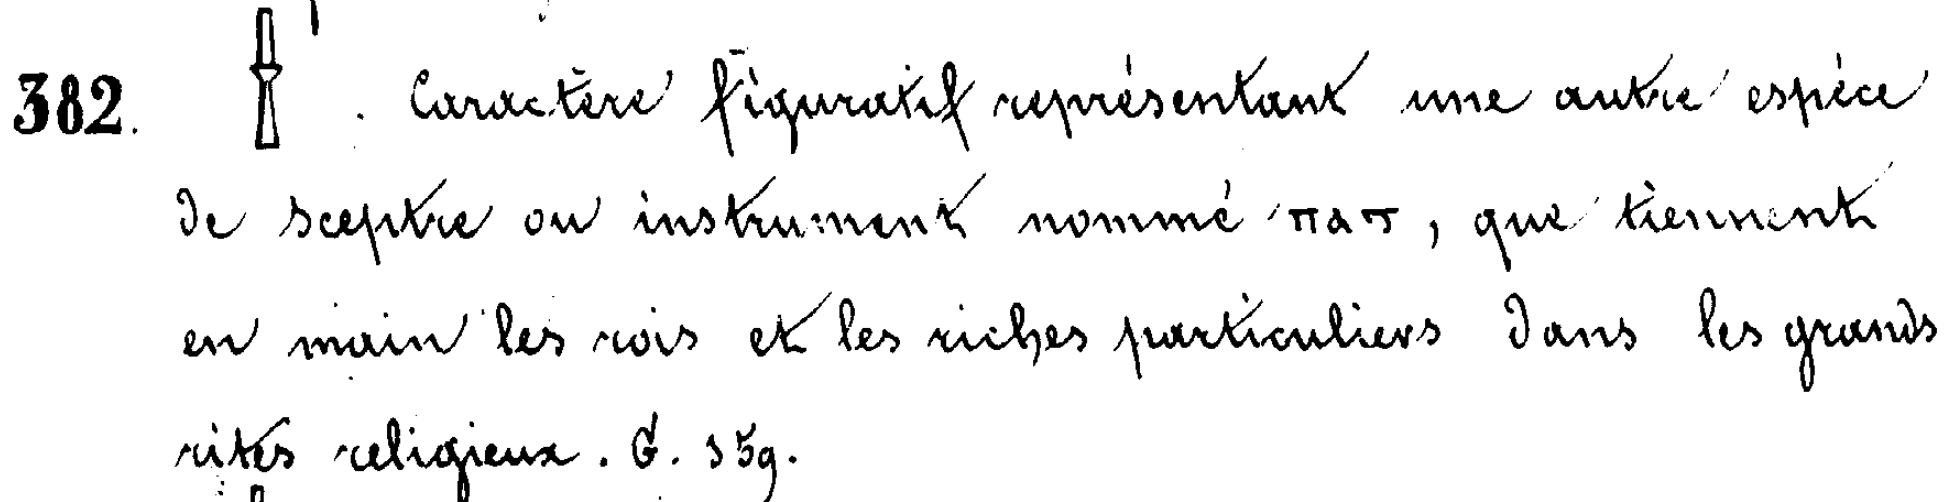 382. . Caractère figuratif représentant une autre espèce
de sceptre ou instrument nommé ⲡⲁⲧ, que tiennent
en main les rois et les riches particuliers dans les grands
rites religieux. G. 359.